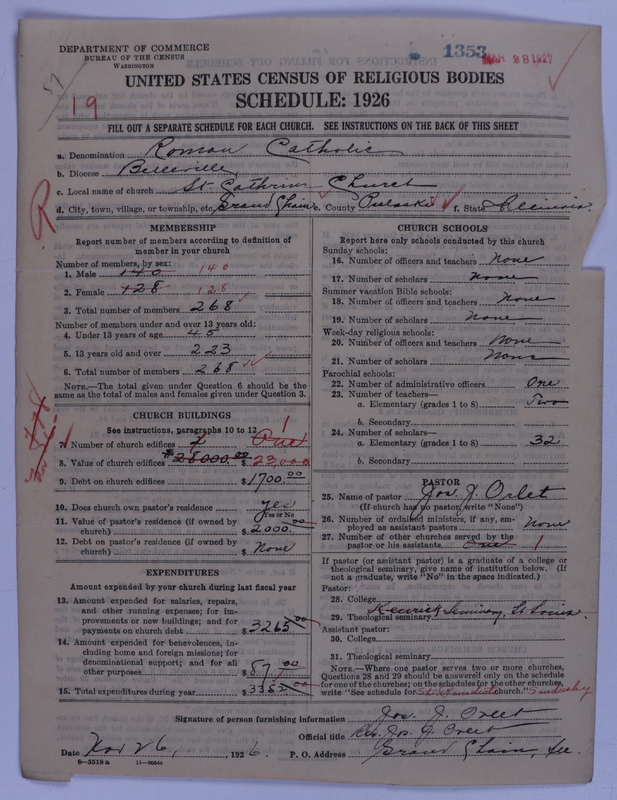 DEPARTMENT OF COMMERCE
BUREAU OF THE CENSUS
WASHINGTON
1353 MAR 28 1927
57
19
UNITED STATES CENSUS OF RELIGIOUS BODIES
SCHEDULE: 1926
FILL OUT A SEPARATE SCHEDULE FOR EACH CHURCH. SEE INSTRUCTIONS ON THE BACK OF THIS SHEET
a. Denomination Roman Catholic
b. Diocese Belleville
c. Local name of church St. Cathrin Church
d. City, town, village, or township, etc. Grand Chain e. County Pulaski f. State Illinois.
R
MEMBERSHIP
Report number of members according to definition of member in your church
Number of members, by sex:
1. Male 140 140
2. Female 128 128
3. Total number of members 268
Number of members under and over 13 years old:
4. Under 13 years of age 45
5. 13 years old and over 223
6. Total number of members 268
NOTE.—The total given under Question 6 should be the
same as the total of males and females given under Question 3.
CHURCH BUILDINGS
See instructions, paragraphs 10 to 12
7. Number of church edifices 2 One 1
8. Value of church edifices $25000.00 $23,000
9. Debt on church edifices $1700.00
10. Does church own pastor's residence yes
Yes or No
11. Value of pastor's residence (if owned by
church) $2000.00
12. Debt on pastor's residence (if owned by
church) $ None
EXPENDITURES
Amount expended by your church during last fiscal year
13. Amount expended for salaries, repairs,
and other running expenses; for im-
provements or new buildings; and for
payments on church debt $3265.00
14. Amount expended for benevolences, in-
cluding home and foreign missions; for
denominational support; and for all
other purposes $87.00
15. Total expenditures during year $3352.00
CHURCH SCHOOLS
Report here only schools conducted by this church
Sunday schools:
16. Number of officers and teachers None
17. Number of scholars None
Summer vacation Bible schools:
18. Number of officers and teachers None
19. Number of scholars None
Week-day religious schools:
20. Number of officers and teachers None
21. Number of scholars None
Parochial schools:
22. Number of administrative officers One
23. Number of teachers—
a. Elementary (grades 1 to 8) Two
b. Secondary
24. Number of scholars—
a. Elementary (grades 1 to 8) 32
b. Secondary
PASTOR
25. Name of pastor Jos. J. Orlet
(If church has no pastor, write "None")
26. Number of ordained ministers, if any, em-
ployed as assistant pastors None
27. Number of other churches served by the
pastor or his assistants One 1
If pastor (or assistant pastor) is a graduate of a college or
theological seminary, give name of institution below. (If
not a graduate, write "No" in the space indicated.)
Pastor:
28. College
29. Theological seminary Kenrick Seminary, St. Louis.
Assistant pastor:
30. College
31. Theological seminary
NOTE.—Where one pastor serves two or more churches,
Questions 28 and 29 should be answered only on the schedule
for one of the churches; on the schedules for the other churches,
write "See schedule for St. Benedict church." Sandusky
Signature of person furnishing information Jos. J. Orlet
Official title Rev. Jos. J. Orlet
Date Nov 26, 1926. P. O. Address Grand Chain, Ill.
8—5318 a 11—90540